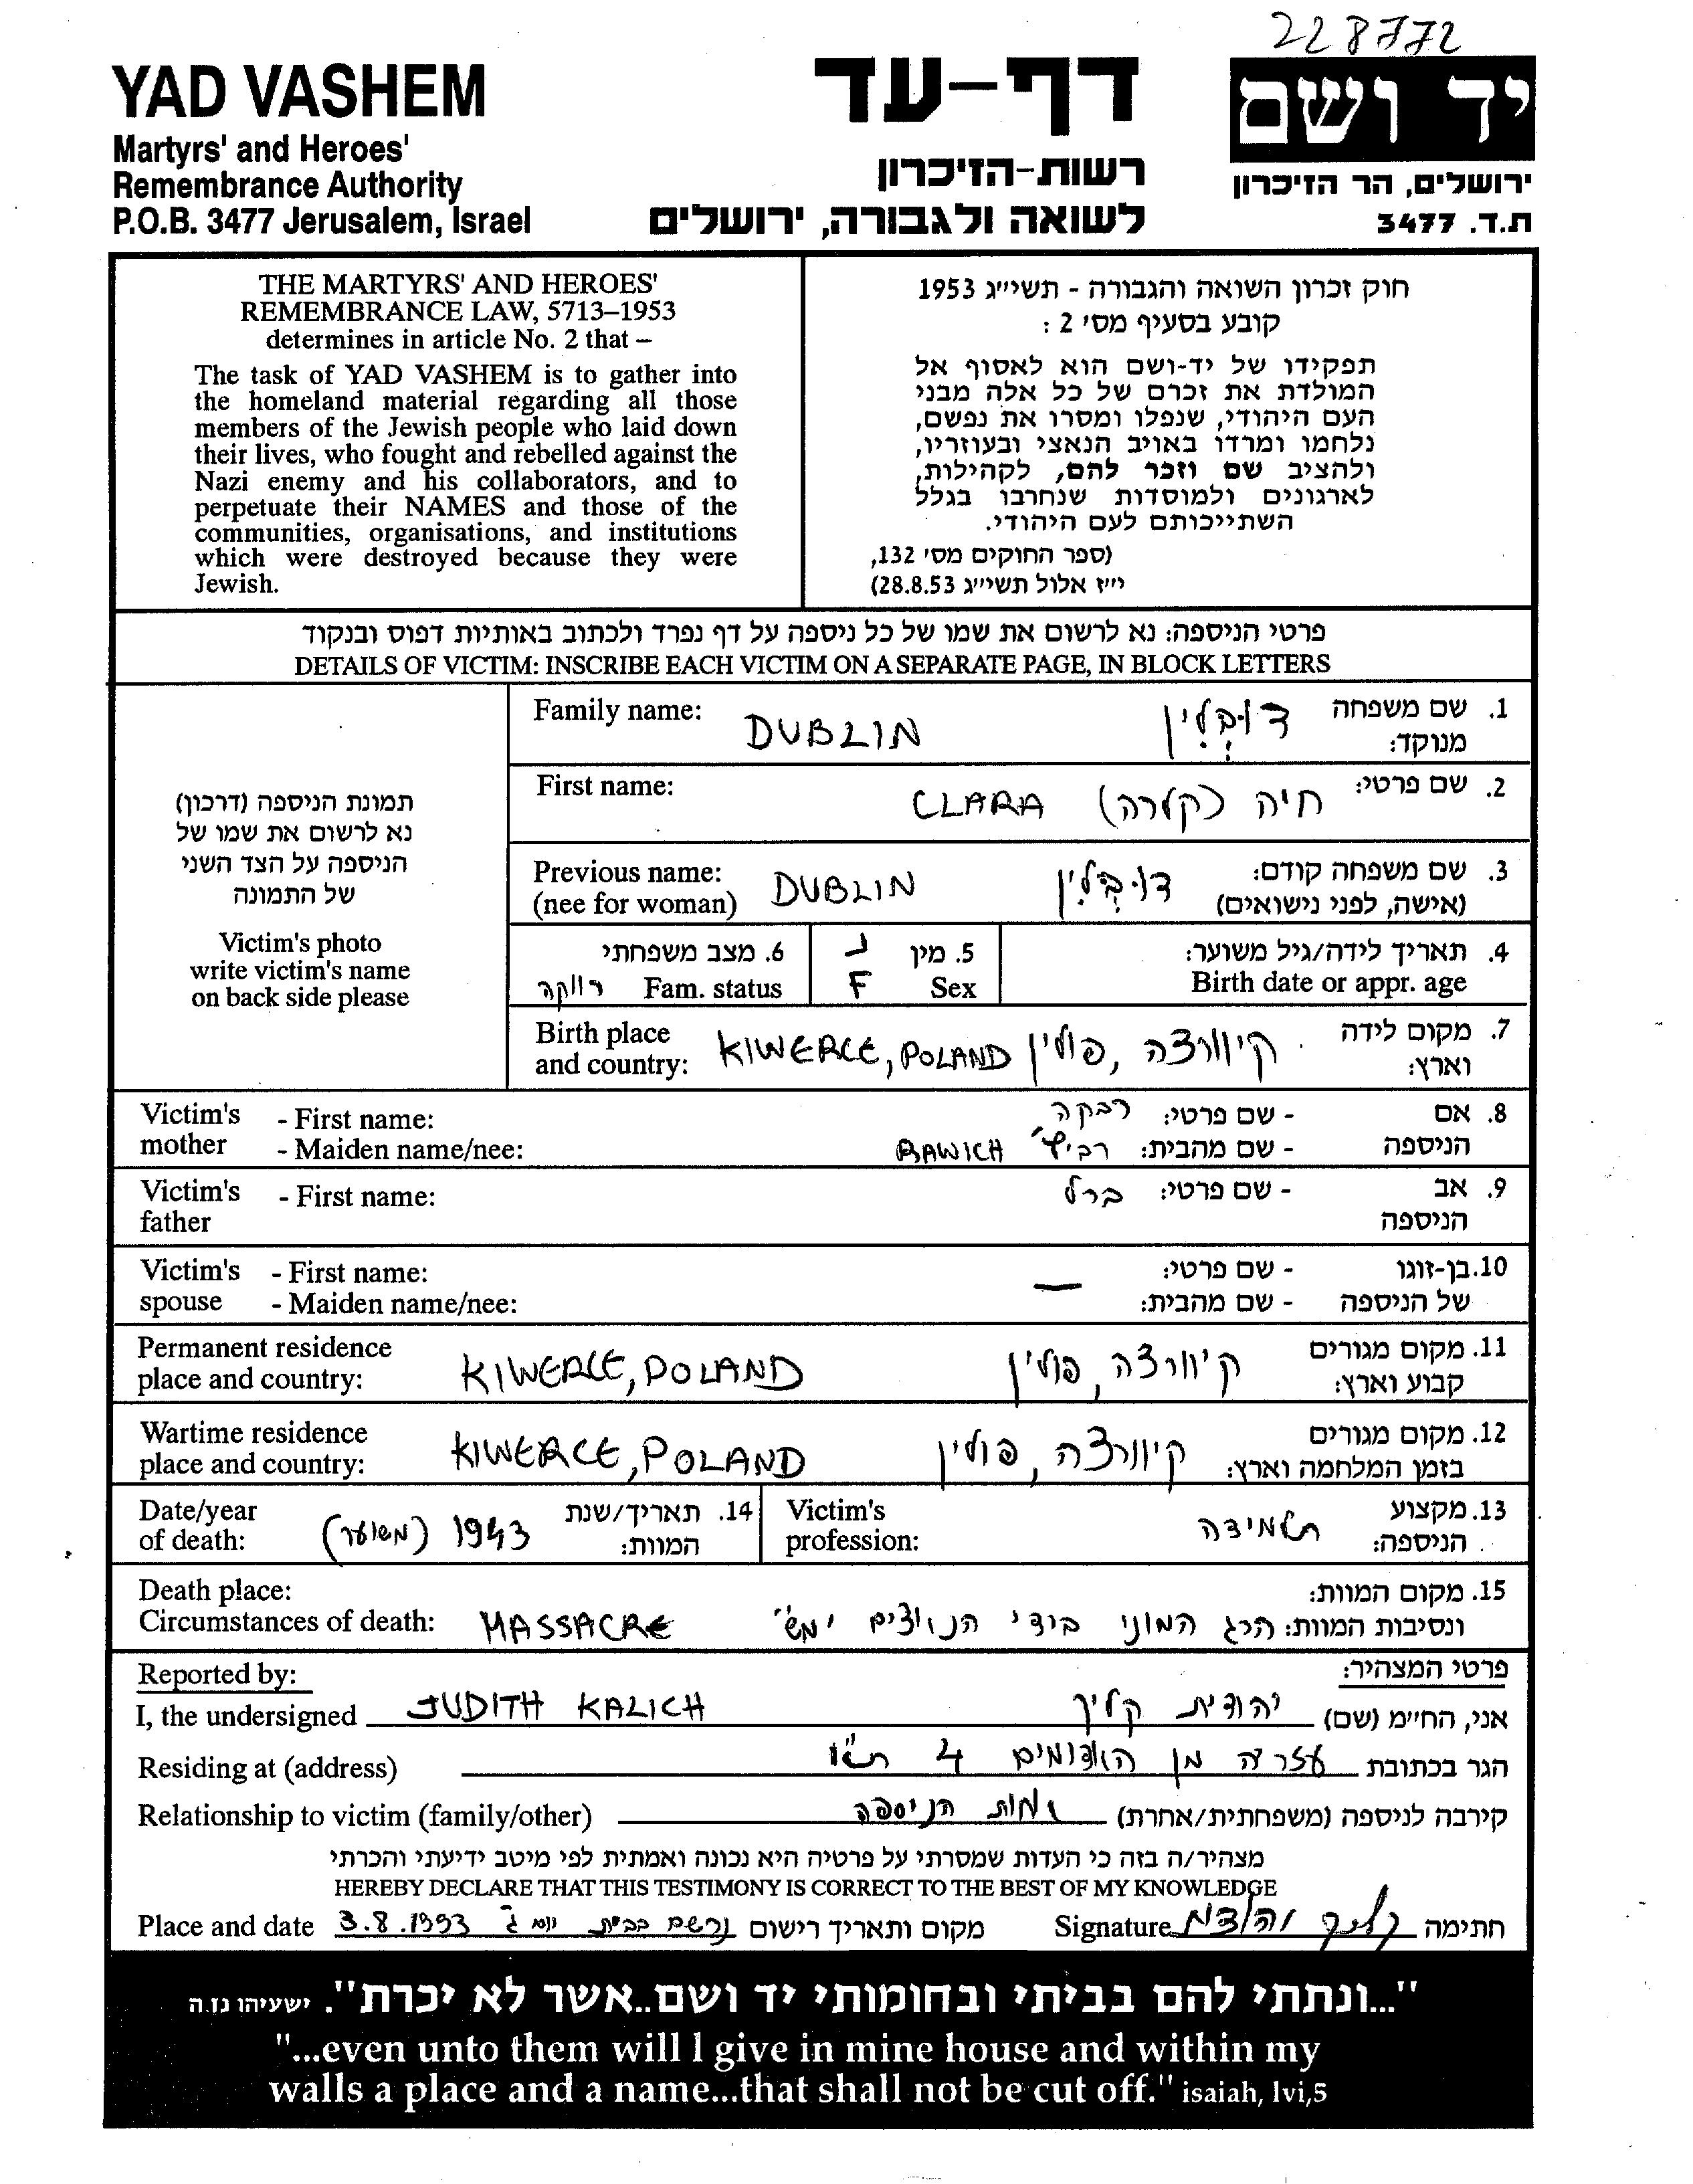 228772
YAD VASHEM
Martyrs' and Heroes'
Remembrance Authority
P.O.B. 3477 Jerusalem, Israel
דף-עד
רשות-הזיכרון
לשואה ולגבורה, ירושלים
יד ושם
ירושלים, הר הזיכרון
ת.ד. 3477
THE MARTYRS' AND HEROES'
REMEMBRANCE LAW, 5713–1953
determines in article No. 2 that –
The task of YAD VASHEM is to gather into
the homeland material regarding all those
members of the Jewish people who laid down
their lives, who fought and rebelled against the
Nazi enemy and his collaborators, and to
perpetuate their NAMES and those of the
communities, organisations, and institutions
which were destroyed because they were
Jewish.
חוק זכרון השואה והגבורה - תשי״ג 1953
קובע בסעיף מס׳ 2 :
תפקידו של יד-ושם הוא לאסוף אל
המולדת את זכרם של כל אלה מבני
העם היהודי, שנפלו ומסרו את נפשם,
נלחמו ומרדו באויב הנאצי ובעוזריו,
ולהציב שם וזכר להם, לקהילות,
לארגונים ולמוסדות שנחרבו בגלל
השתייכותם לעם היהודי.
(ספר החוקים מס׳ 132,
י״ז אלול תשי״ג 28.8.53)
פרטי הניספה: נא לרשום את שמו של כל ניספה על דף נפרד ולכתוב באותיות דפוס ובנקוד
DETAILS OF VICTIM: INSCRIBE EACH VICTIM ON A SEPARATE PAGE, IN BLOCK LETTERS
תמונת הניספה (דרכון)
נא לרשום את שמו של
הניספה על הצד השני
של התמונה
Victim's photo
write victim's name
on back side please
Family name: DUBLIN דובלין 1. שם משפחה
מנוקד:
First name: CLARA חיה (קלרה) 2. שם פרטי:
Previous name: DUBLIN דובלין 3. שם משפחה קודם:
(nee for woman) (אישה, לפני נישואים)
6. מצב משפחתי 5. מין נ 4. תאריך לידה/גיל משוער:
רווקה Fam. status F Sex Birth date or appr. age
Birth place KIWERCE, POLAND קיוורצה, פולין 7. מקום לידה
and country: וארץ:
Victim's - First name: רבקה - שם פרטי: 8. אם
mother - Maiden name/nee: RAWICH רביץ' - שם מהבית: הניספה
Victim's - First name: ברל - שם פרטי: 9. אב
father הניספה
Victim's - First name: — - שם פרטי: 10. בן-זוגו
spouse - Maiden name/nee: - שם מהבית: של הניספה
Permanent residence 11. מקום מגורים
place and country: KIWERCE, POLAND קיוורצה, פולין קבוע וארץ:
Wartime residence 12. מקום מגורים
place and country: KIWERCE, POLAND קיוורצה, פולין בזמן המלחמה וארץ:
Date/year 14. תאריך/שנת Victim's 13. מקצוע
of death: 1943 (משוער) המוות: profession: תלמידה הניספה:
Death place: 15. מקום המוות:
Circumstances of death: MASSACRE הרג המוני בידי הנאצים ימ"ש ונסיבות המוות:
Reported by: פרטי המצהיר:
I, the undersigned JUDITH KALICH יהודית קליך אני, החי״מ (שם)
Residing at (address) עזרה מן האדומים 4 ת"א הגר בכתובת
Relationship to victim (family/other) אחות הניספה קירבה לניספה (משפחתית/אחרת)
מצהיר/ה בזה כי העדות שמסרתי על פרטיה היא נכונה ואמתית לפי מיטב ידיעתי והכרתי
HEREBY DECLARE THAT THIS TESTIMONY IS CORRECT TO THE BEST OF MY KNOWLEDGE
Place and date 3.8.1993 יום ג' נרשם בבית מקום ותאריך רישום Signature קליך חתימה
"...ונתתי להם בביתי ובחומותי יד ושם..אשר לא יכרת". ישעיהו נז.ה
"...even unto them will I give in mine house and within my
walls a place and a name...that shall not be cut off." isaiah, lvi,5